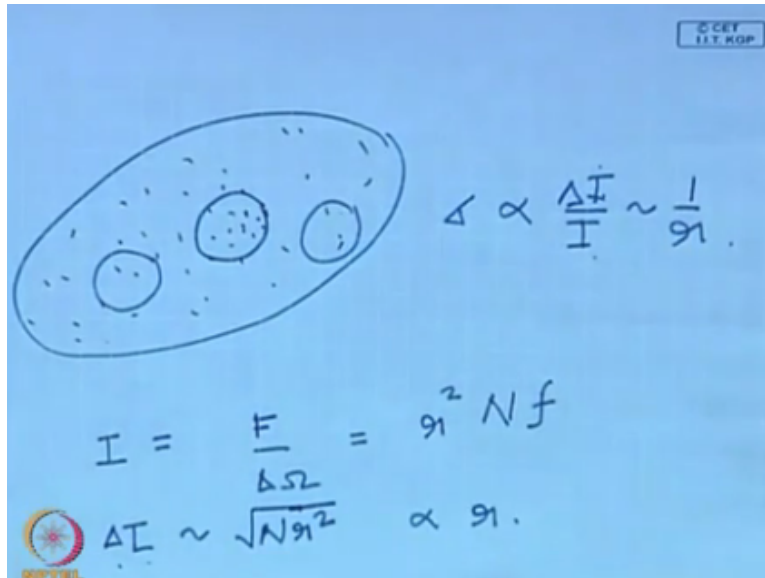 © CET
I.I.T. KGP
σ ∝ ΔI/I ~ 1/r.
I = F/ΔΩ = r² N f
ΔI ~ √(Nr²) ∝ r.
NPTEL